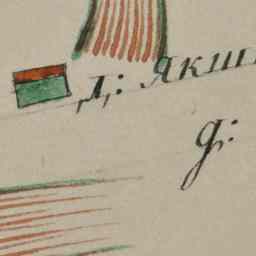 д: Якши
д: